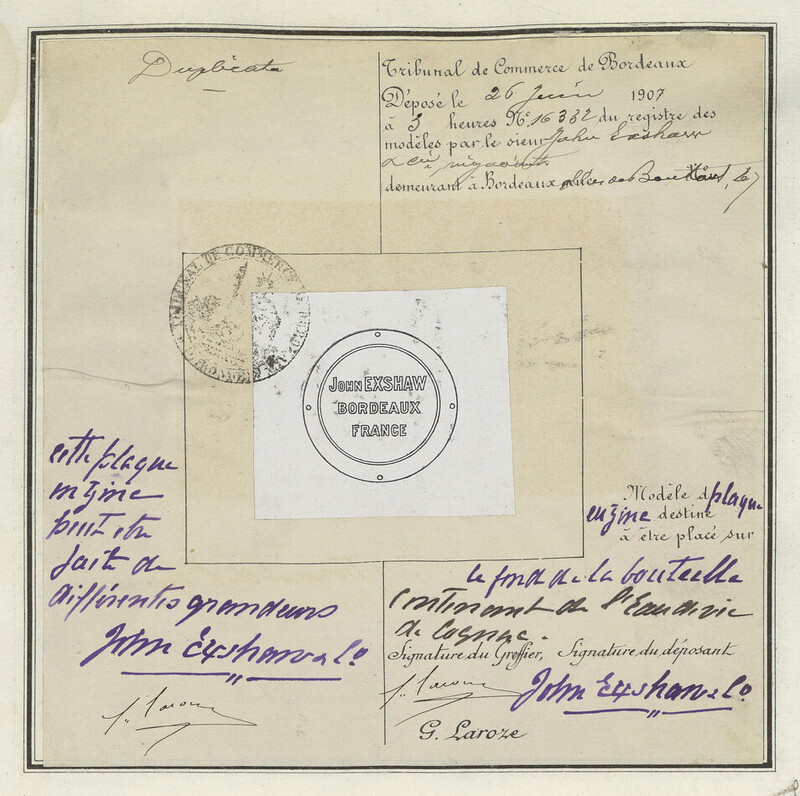 Duplicata
Tribunal de Commerce de Bordeaux
Déposé le 26 Juin 1907
à 3 heures N° 16332 du registre des
modèles par le sieur John Exshaw
& Cie négociants
demeurant à Bordeaux allées de Boutaut,
TRIBUNAL DE COMMERCE
JOHN EXSHAW
BORDEAUX
FRANCE
cette plaque
en zinc
peut etre
faite de
différentes grandeurs
John Exshaw & Co
Modèle d plaque
en zinc destiné
à être placé sur
le fond de la bouteille
contenant de l'Eau de vie
de Cognac.
Signature du Greffier, Signature du déposant
John Exshaw & Co
G. Laroze